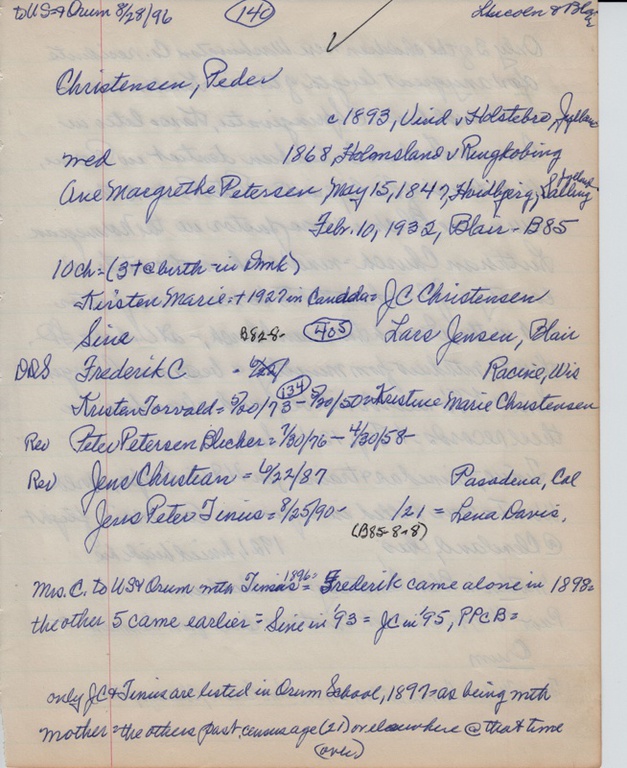 to US & Orum 8/28/96 (140) Lincoln & Blair
Christensen, Peder
c 1893, Vind v Holstebro, Jylland
wed 1868, Holmsland v Ringkobing
Ane Margrethe Petersen May 15, 1847, Hvidbjerg, Salling Jylland
Febr. 10, 1932, Blair - B85
10 ch = (3 + @ birth - in Dmk)
Kirsten Marie = + 1927 in Canada = JC Christensen
Sine B828- (405) Lars Jensen, Blair
DDS Frederik C - Racine, Wis
(134)
Kristen Torvald = 5/20/73 - 5/20/50 = Kristine Marie Christensen
Rev Peter Petersen Blicher = 7/30/76 - 4/30/58 -
Rev Jens Christian = 4/22/87 Pasadena, Cal
Jens Peter Tinius = 8/25/90 - /21 = Lena Davis,
(B85-8-8)
Mrs. C. to US & Orum with Tinius 1896 = Frederik came alone in 1898 =
the other 5 came earlier = Sine in '93 = JC in '95, PPcB =
only JC & Tinius are listed in Orum School, 1897 = as being with
mother = the others past census age (21) or elsewhere @ that time
(over)